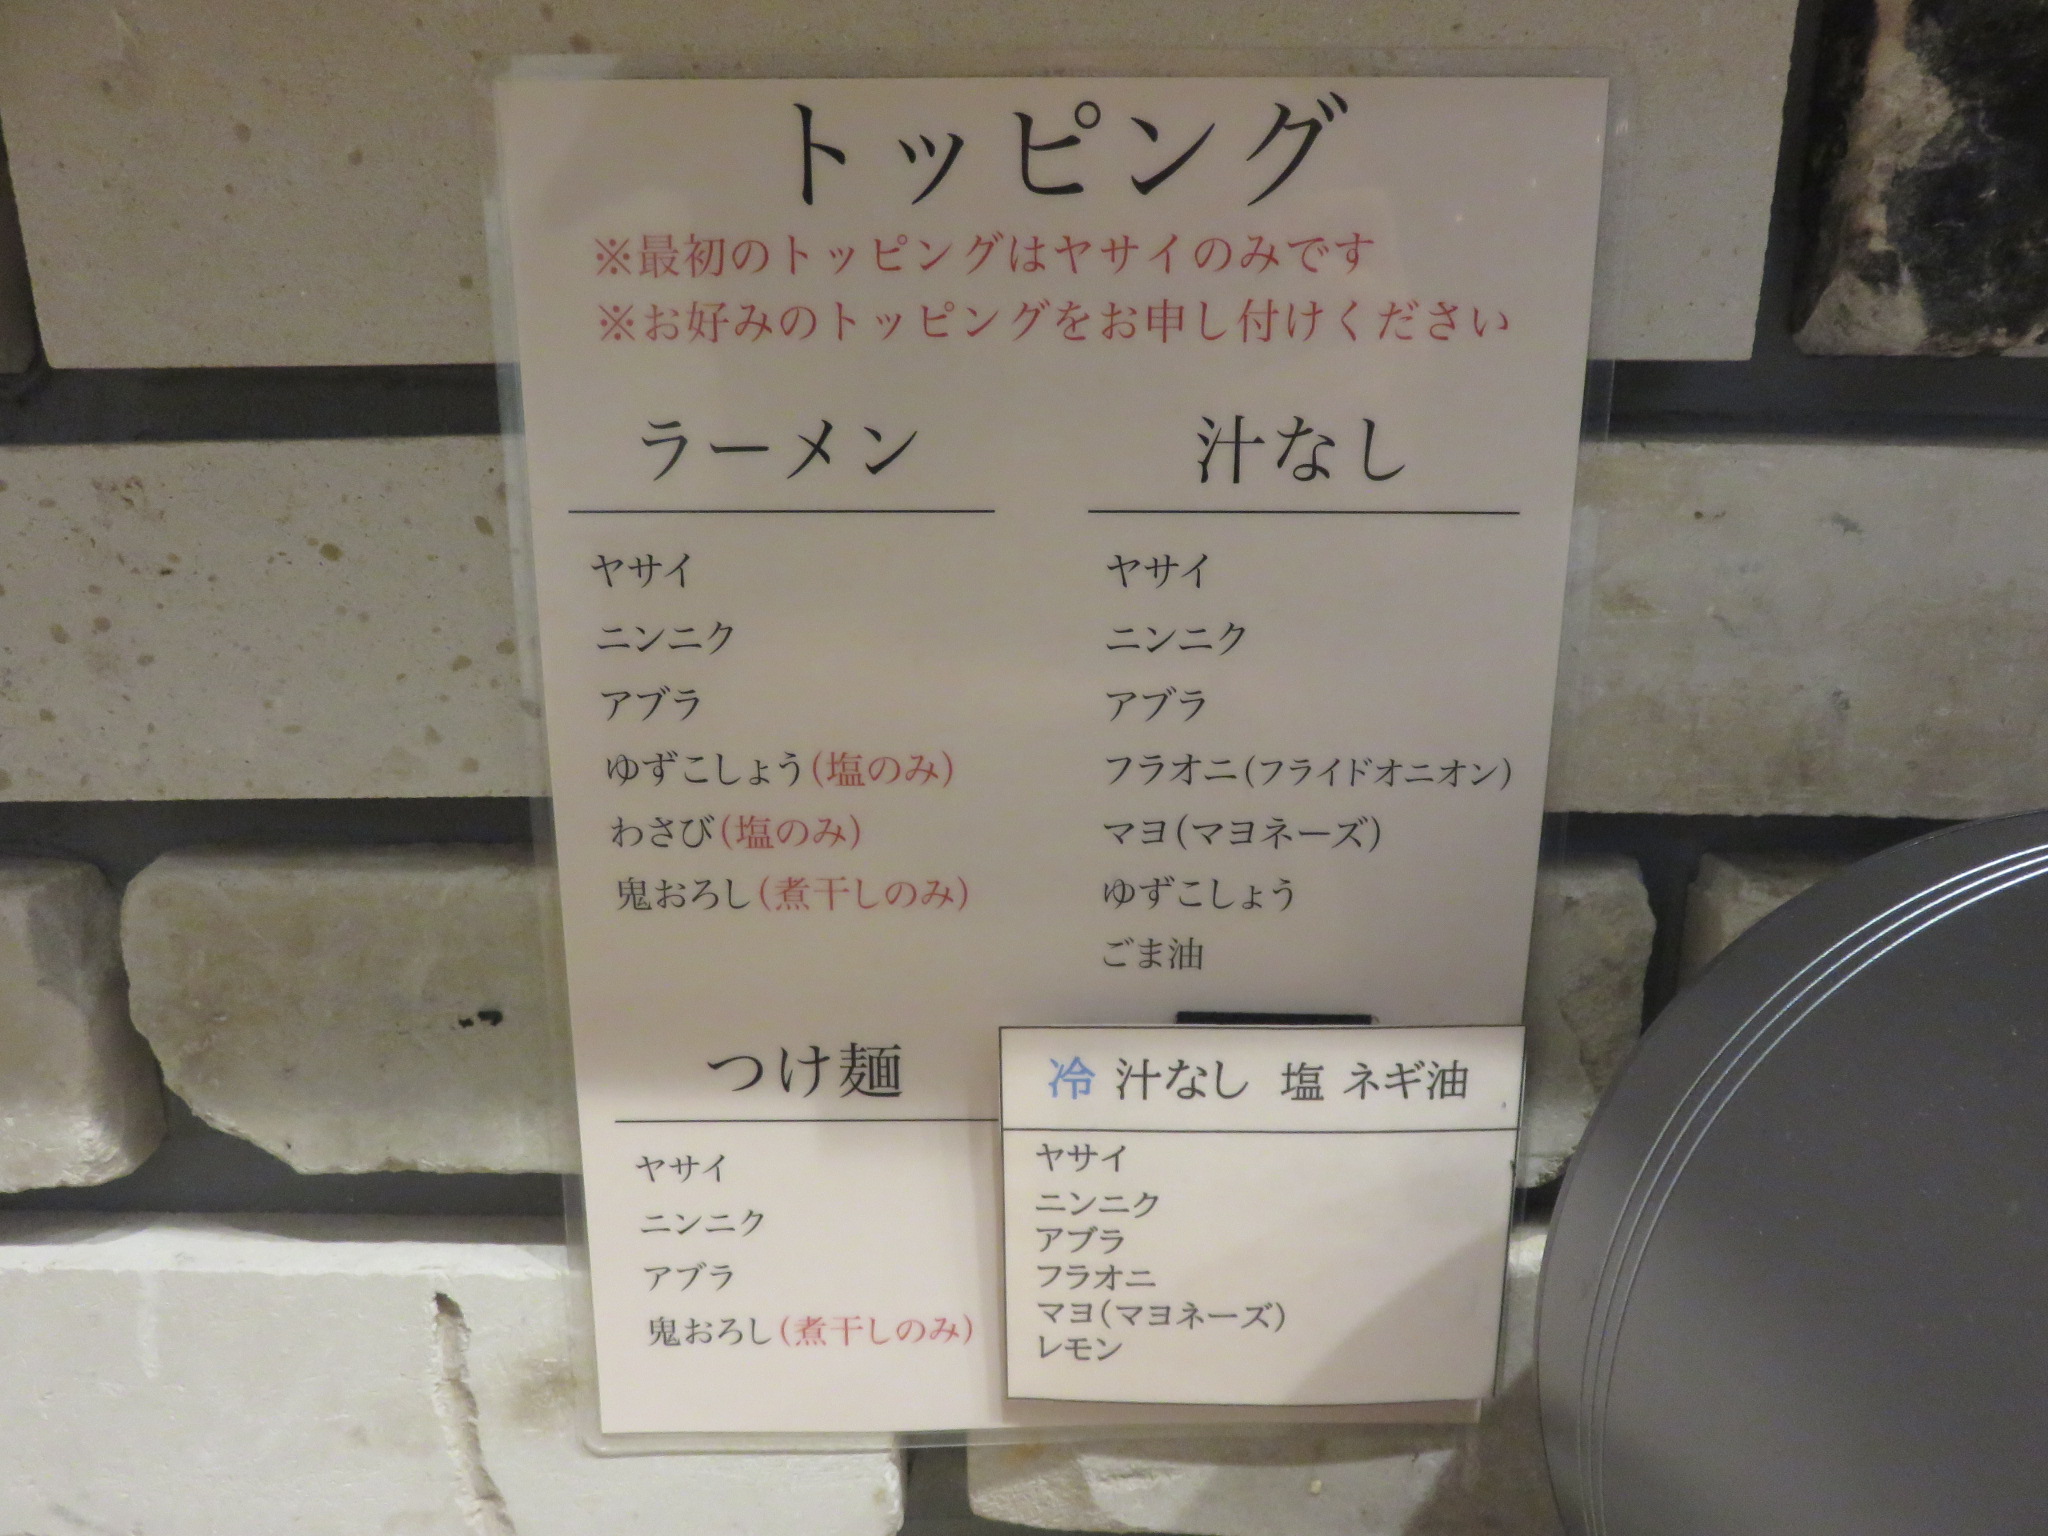 トッピング
※最初のトッピングはヤサイのみです
※お好みのトッピングをお申し付けください
ラーメン
ヤサイ
ニンニク
アブラ
ゆずこしょう(塩のみ)
わさび(塩のみ)
鬼おろし(煮干しのみ)
汁なし
ヤサイ
ニンニク
アブラ
フラオニ(フライドオニオン)
マヨ(マヨネーズ)
ゆずこしょう
ごま油
つけ麺
ヤサイ
ニンニク
アブラ
鬼おろし(煮干しのみ)
冷 汁なし 塩 ネギ油
ヤサイ
ニンニク
アブラ
フラオニ
マヨ(マヨネーズ)
レモン